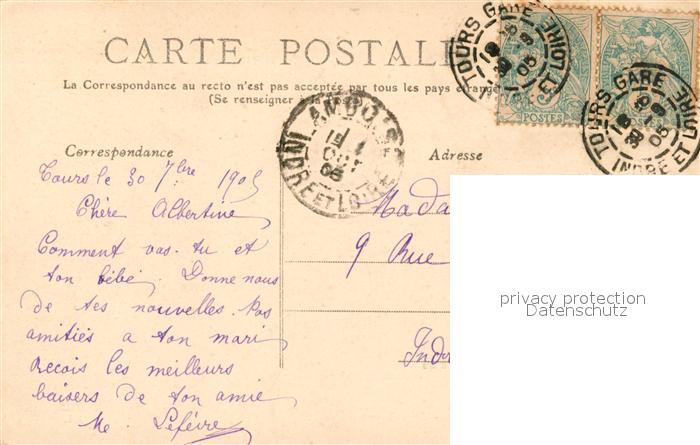 CARTE POSTALE
La Correspondance au recto n'est pas acceptée par tous les pays étrange
(Se renseigner à la poste
Correspondance
Adresse
TOURS GARE
INDRE ET LOIRE
TOURS GARE
INDRE ET LOIRE
05
POSTES
POSTES
AMBOISE
INDRE ET LOIRE
Tours le 30 7bre 1905
Chère Albertine
Comment vas-tu et
ton bébé. Donne nous
de tes nouvelles. Nos
amitiés a ton mari
Recois les meilleurs
baisers de ton amie
Me. Lefèvre
Mada
9 Rue
Indr
privacy protection
Datenschutz